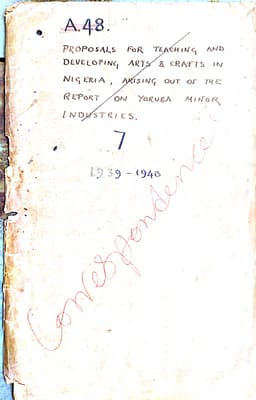 A.48.
PROPOSALS FOR TEACHING AND
DEVELOPING ARTS & CRAFTS IN
NIGERIA, ARISING OUT OF THE
REPORT ON YORUBA MINOR
INDUSTRIES.
7
1939-1940
Correspondence